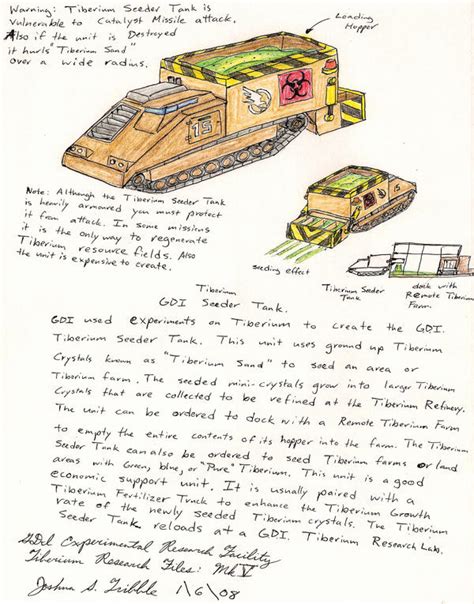 Warning: Tiberium Seeder Tank is
vulnerable to Catalyst Missile attack.
Also if the unit is Destroyed
it hurls "Tiberium Sand"
over a wide radius.
Loading
Hopper
15
Note: Although the Tiberium Seeder Tank
is heavily armoured you must protect
it from attack. In some missions
it is the only way to regenerate
Tiberium resource fields. Also
the unit is expensive to create.
15
seeding effect
Tiberium Seeder
Tank
dock with
Remote Tiberium
Farm
Tiberium
GDI Seeder Tank.
GDI used experiments on Tiberium to create the GDI.
Tiberium Seeder Tank. This unit uses ground up Tiberium
Crystals known as "Tiberium Sand" to seed an area or
Tiberium farm. The seeded mini-crystals grow into larger Tiberium
Crystals that are collected to be refined at the Tiberium Refinery.
The unit can be ordered to dock with a Remote Tiberium Farm
to empty the entire contents of its hopper into the farm. The Tiberium
Seeder Tank can also be ordered to seed Tiberium farms or land
areas with Green, blue, or "Pure" Tiberium. This unit is a good
economic support unit. It is usually paired with a
Tiberium Fertilizer Truck to enhance the Tiberium Growth
rate of the newly seeded Tiberium crystals. The Tiberium
Seeder Tank reloads at a GDI. Tiberium Research Lab.
GDI Experimental Research Facility
Tiberium Research Files: Mk V
Joshua S. Tribble 1/6/08